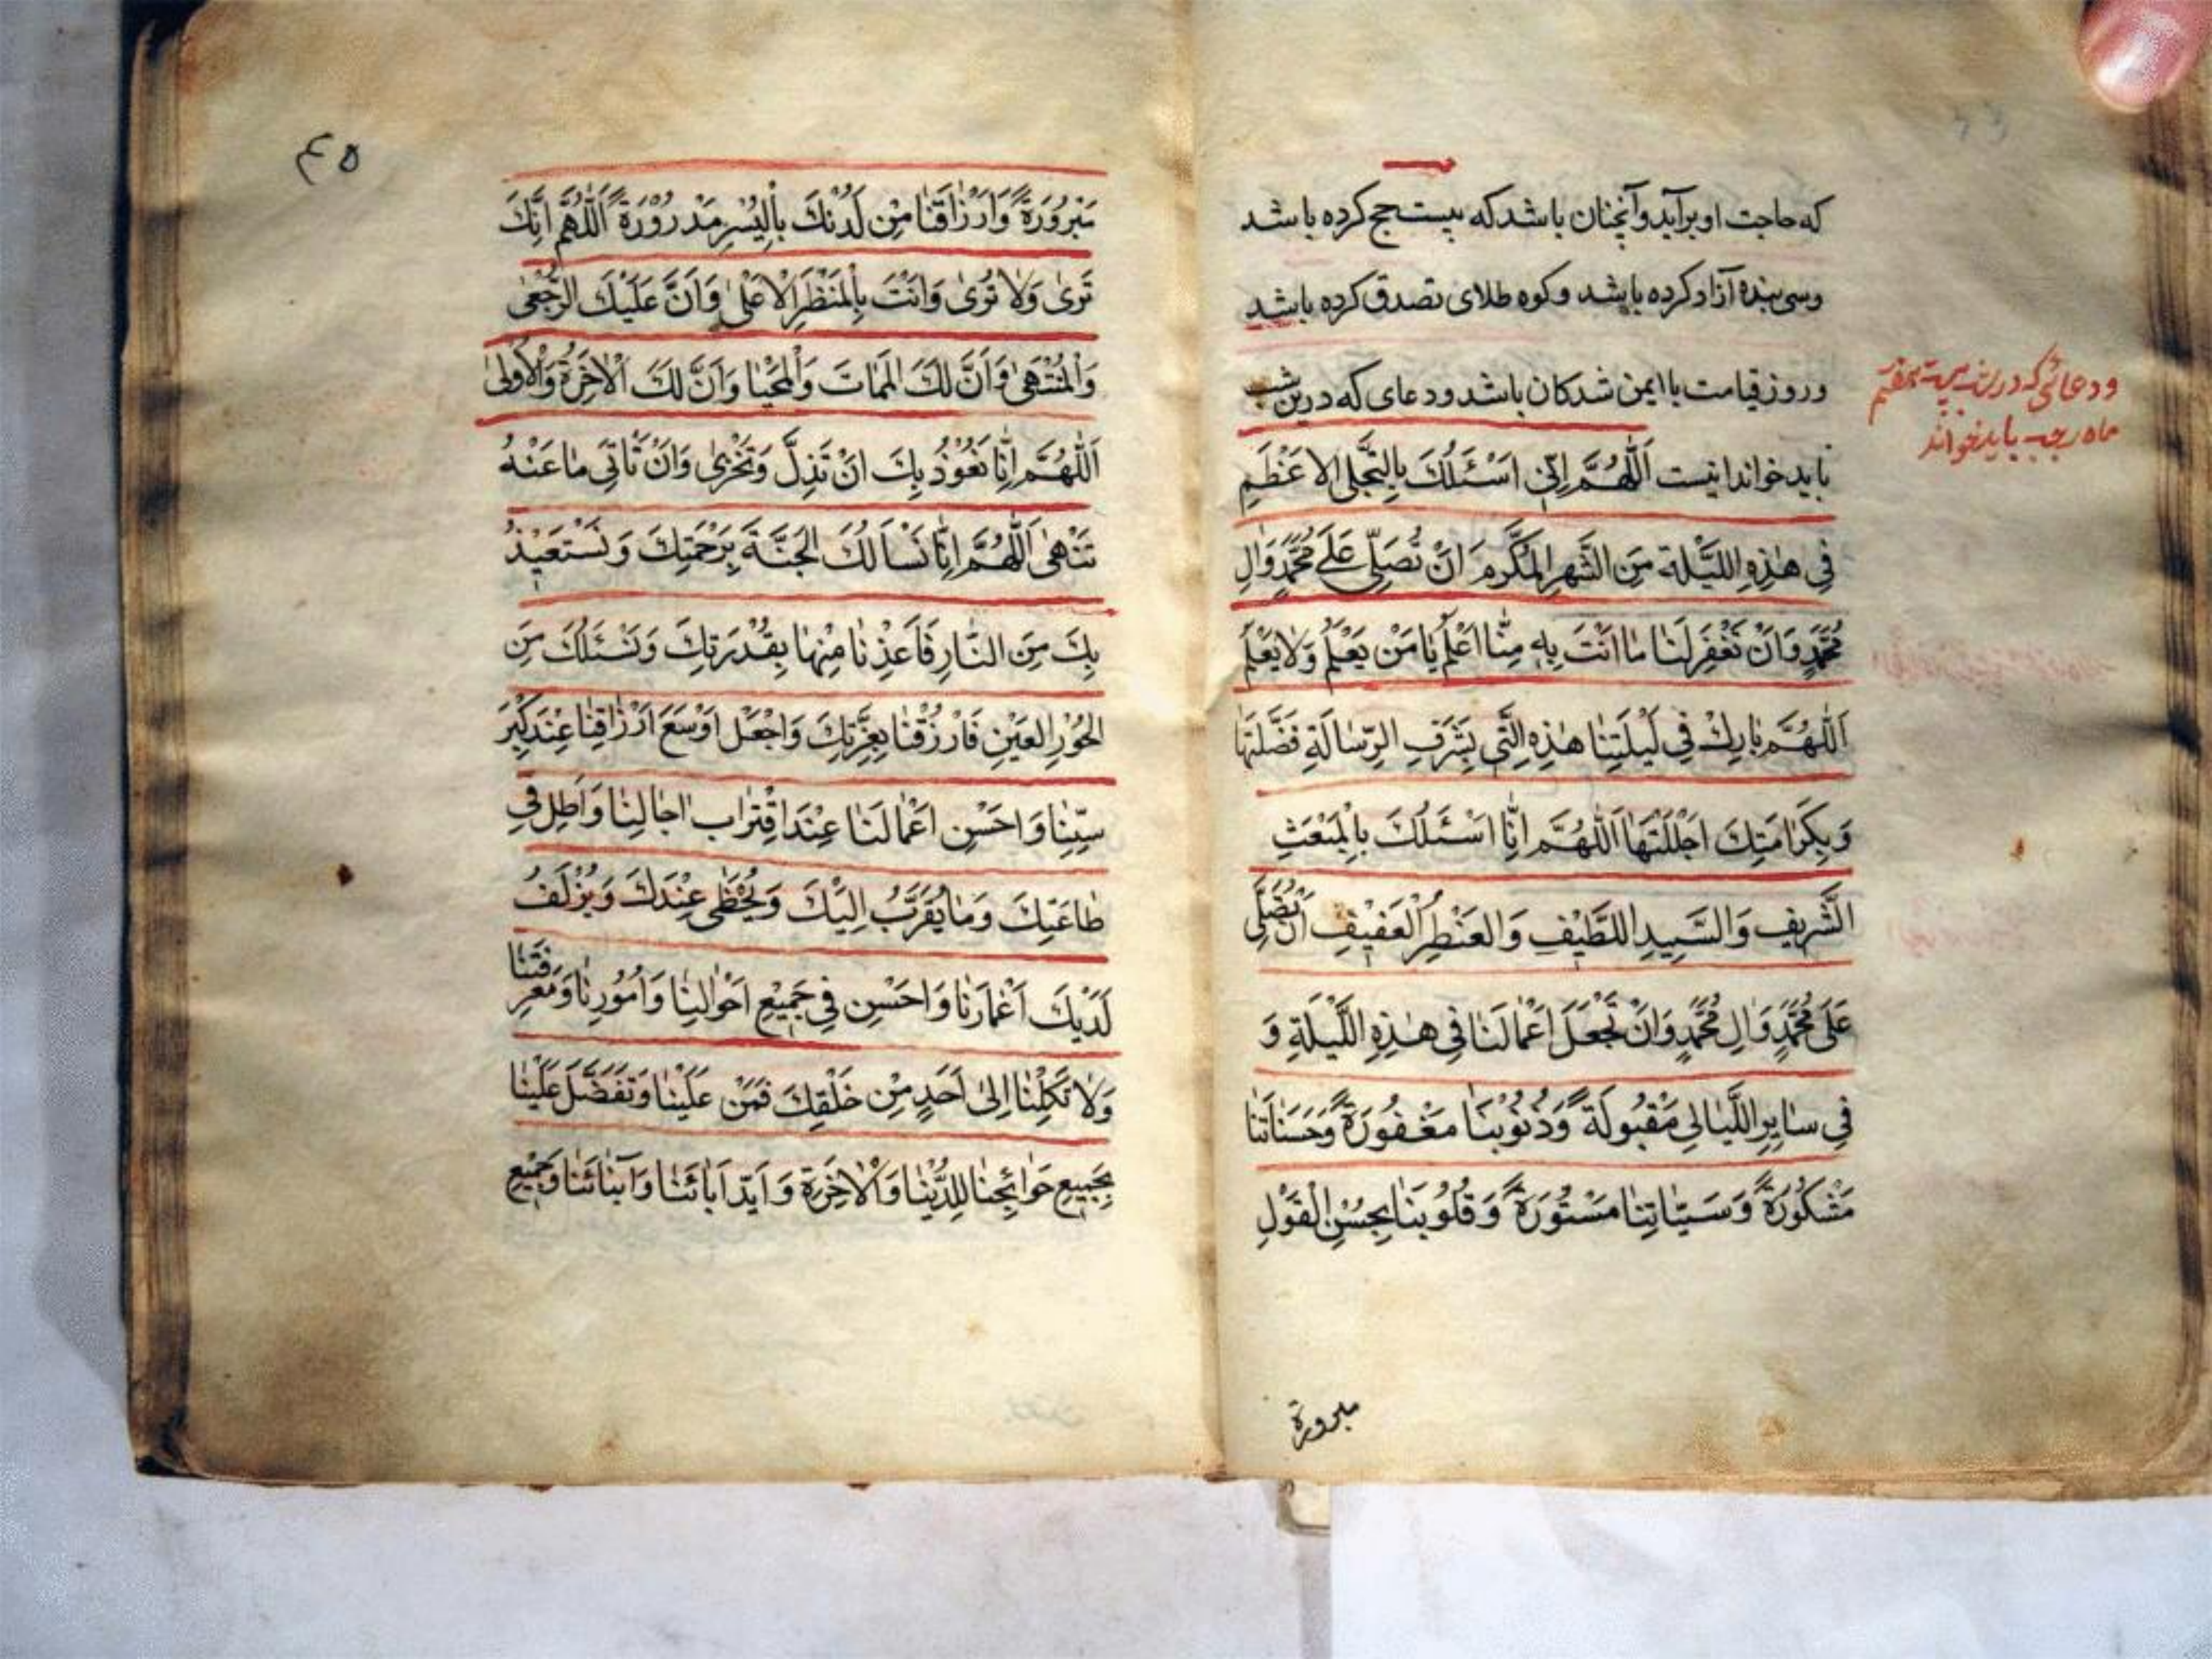 که حاجت او برآید و آنچنان باشد که بیست حج کرده باشد
وسی بنده آزاد کرده باشد و کوه طلای تصدق کرده باشد
و روز قیامت با ایمن شدکان باشد و دعای که درین شب
باید خواند اینست اَللّٰهُمَّ اِنّی اَسْئَلُكَ بِالتَّجَلی الاَعْظَمِ
فِی هٰذِهِ اللَّیْلَة مِنَ الشَّهرِ المُکَرَّمِ اَنْ تُصَلِّیَ عَلیٰ مُحَمَّدٍ وَالِ
مُحَمَّدٍ وَاَنْ تَغْفِرَ لَنٰا مٰا اَنْتَ بِهِ مِنّٰا اَعْلَمُ یٰا مَنْ یَعْلَمُ وَلاٰ یَعْلَمُ
اَللّٰهُمَّ بٰارِكْ فِی لَیْلَتِنٰا هٰذِهِ الَّتِی بِشَرَفِ الرِّسٰالَةِ فَضَّلْتَهٰا
وَبِکَرٰامَتِكَ اَجْلَلْتَهٰا اَللّٰهُمَّ اِنّٰا اَسْئَلُكَ بِالْمَبْعَثِ
الشَّرِیفِ وَالسَّیِدِ اللَّطِیْفِ وَالعَنْصُرِ الْعَفِیْفِ اَنْ تُصَلِّیَ
عَلیٰ مُحَمَّدٍ وَالِ مُحَمَّدٍ وَاَنْ تَجْعَلَ اَعْمٰالَنٰا فِی هٰذِهِ اللَّیْلَةِ وَ
فِی سٰایِرِ اللَّیٰالِی مَقْبُولَةً وَذُنُوْبَنٰا مَغْفُورَةً وَحَسَنٰاتَنٰا
مَشْکُوْرَةً وَسَیّئٰاتِنٰا مَسْتُوْرَةً وَقُلُوْبَنٰا بِحُسْنِ الْقَوْلِ
مبرورة
و دعائی که درین شب بیست هفتم
ماه رجب باید خواند
٤٥
مَبْرُوْرَةً وَاَرْزٰاقَنٰا مِنْ لَدُنْكَ بِالْیُسْرِ مَدْرُوْرَةً اَللّٰهُمَّ اِنَّكَ
تَرٰی وَلاٰ تُرٰی وَاَنْتَ بِالْمَنْظَرِ الاَعْلیٰ وَاَنَّ عَلَیْكَ الرُّجْعٰی
وَالْمُنْتَهٰی وَاَنَّ لَكَ المَمٰاتَ وَالْمَحْیٰا وَاَنَّ لَكَ الْاٰخِرَةَ وَالْاُولیٰ
اَللّٰهُمَّ اِنّٰا نَعُوْذُ بِكَ اَنْ نَذِلَّ وَنَخْزٰی وَاَنْ نَاْتِیَ مٰا عَنْهُ
تَنْهٰی اَللّٰهُمَّ اِنّٰا نَسْاَلُكَ الْجَنَّةَ بِرَحْمَتِكَ وَنَسْتَعِیْذُ
بِكَ مِنَ النّٰارِ فَاَعِذْنٰا مِنْهٰا بِقُدْرَتِكَ وَنَسْئَلُكَ مِنَ
الحُوْرِ العَیْنِ فَارْزُقْنٰا بِعِزَّتِكَ وَاجْعَلْ اَوْسَعَ اَرْزٰاقِنٰا عِنْدَ کِبَرِ
سِنِّنٰا وَاَحْسَنِ اَعْمٰالَنٰا عِنْدَ اقْتِرٰابِ اٰجٰالِنٰا وَاَطِلْ فِی
طٰاعَتِكَ وَمٰا یُقَرِّبُ اِلَیْكَ وَیُحْظٰی عِنْدَكَ وَیُزْلَفُ
لَدَیْكَ اَعْمٰارَنٰا وَاَحْسِنْ فِی جَمِیْعِ اَحْوٰالِنٰا وَاُمُوْرِنٰا وَمَعْرِفَتَنٰا
وَلاٰ تَکِلْنٰا اِلیٰ اَحَدٍ مِنْ خَلْقِكَ فَمَنْ عَلَیْنٰا وَتَفَضَّلَ عَلَیْنٰا
بِجَمِیعِ حَوٰائِجِنٰا لِلدُّنْیٰا وَالْاٰخِرَةِ وَ اَبَدّ اٰبٰائَنٰا وَاَبْنٰائَنٰا وَجَمِیْعِ